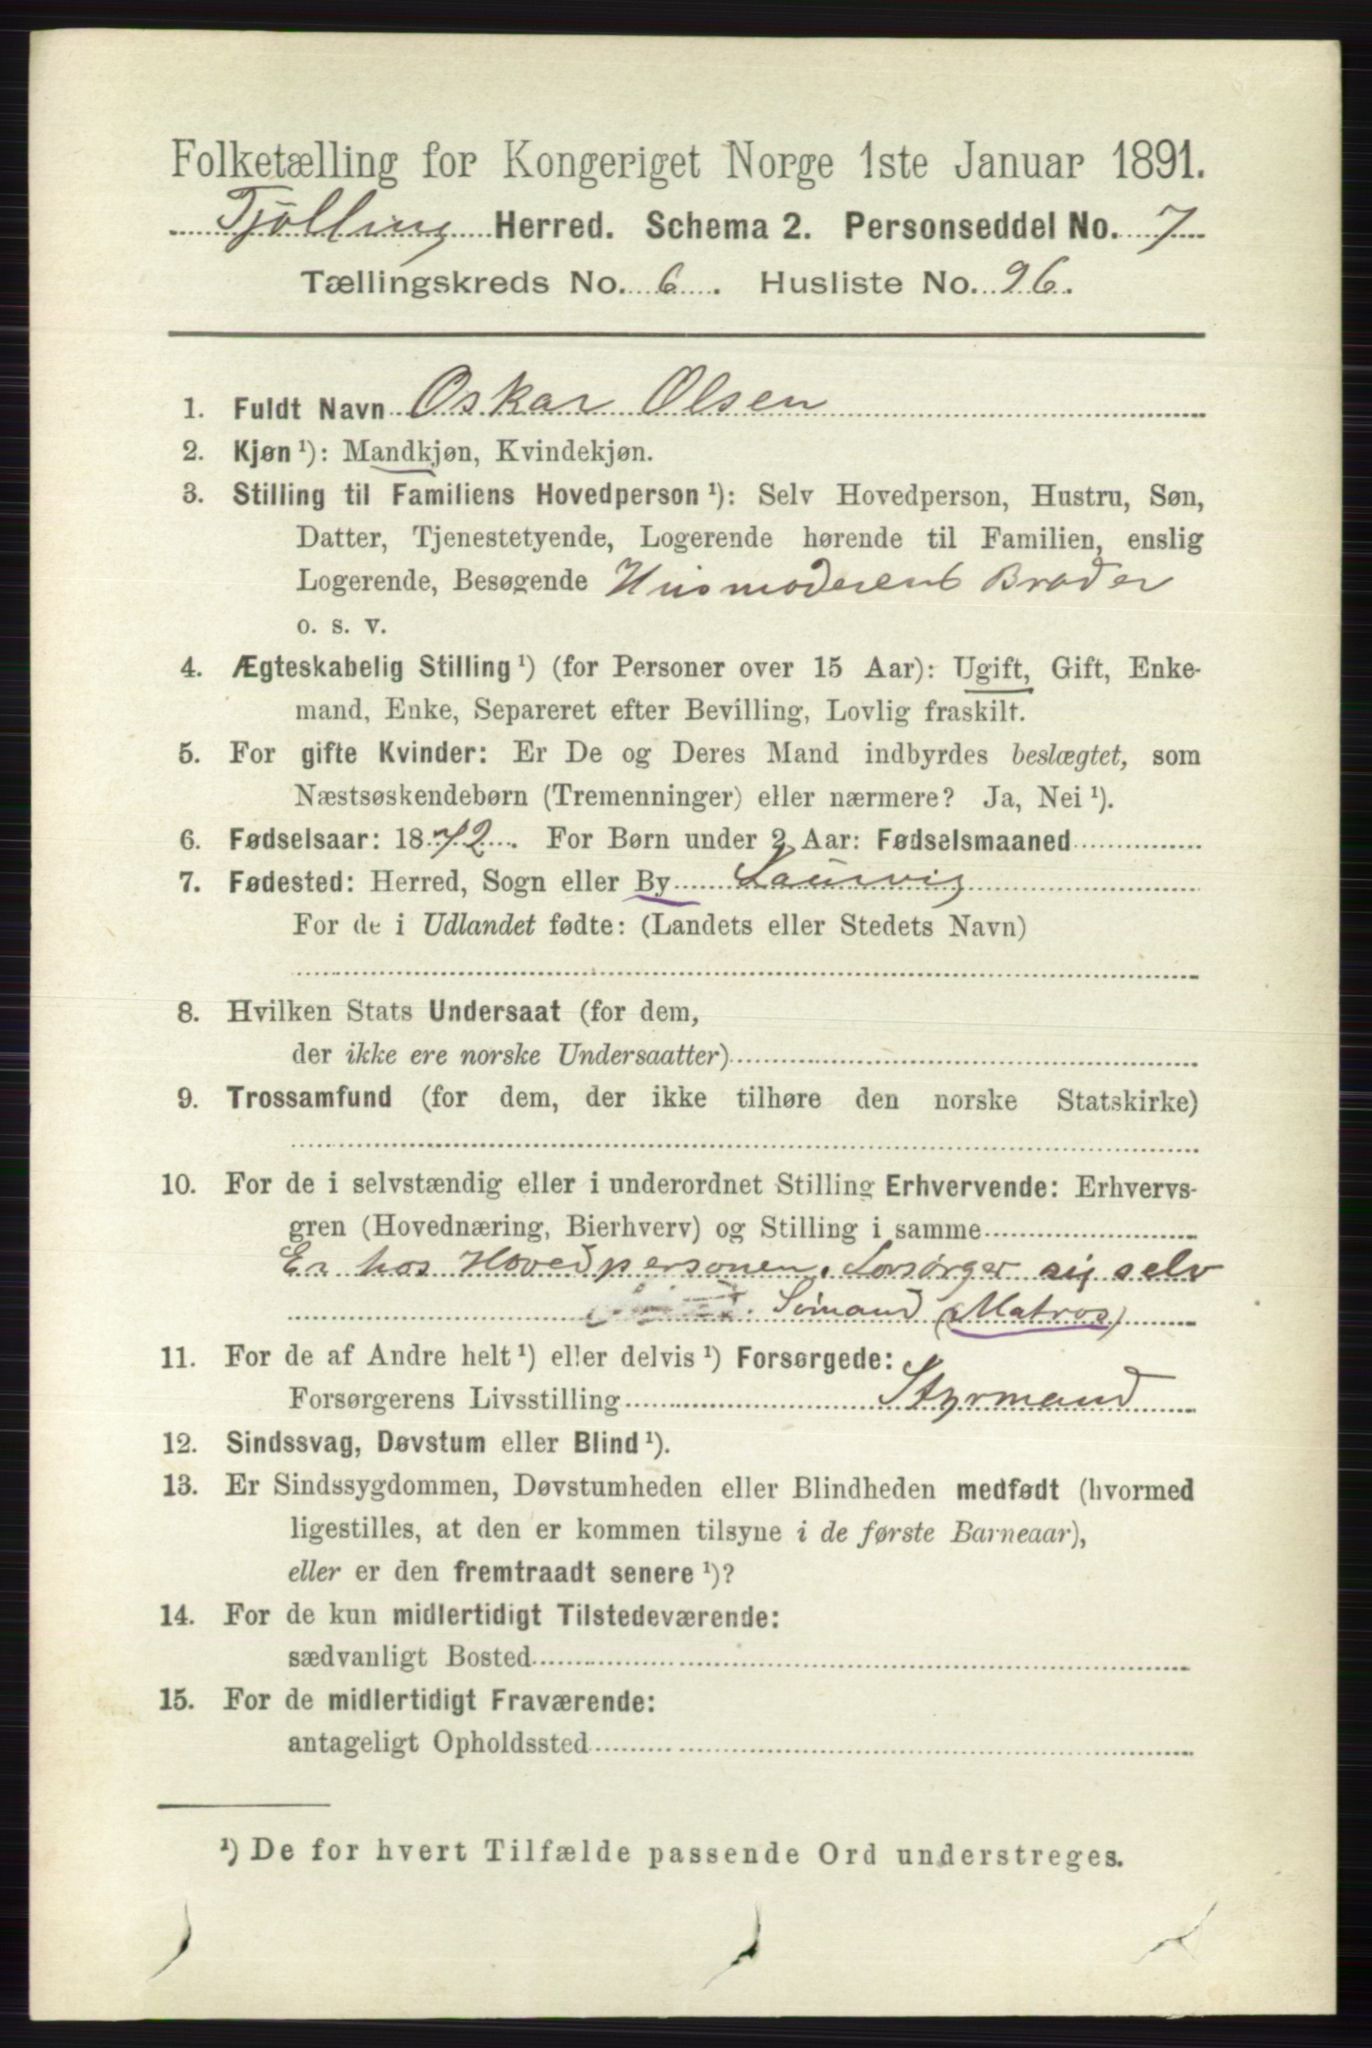 Folketælling for Kongeriget Norge 1ste Januar 1891.
Tjølling Herred. Schema 2. Personseddel No. 7
Tællingskreds No. 6. Husliste No. 26.
1. Fuldt Navn Oskar Olsen
2. Kjøn ¹): Mandkjøn, Kvindekjøn.
3. Stilling til Familiens Hovedperson ¹): Selv Hovedperson, Hustru, Søn,
Datter, Tjenestetyende, Logerende hørende til Familien, enslig
Logerende, Besøgende Husmoderens Broder
o. s. v.
4. Ægteskabelig Stilling ¹) (for Personer over 15 Aar): Ugift, Gift, Enke-
mand, Enke, Separeret efter Bevilling, Lovlig fraskilt.
5. For gifte Kvinder: Er De og Deres Mand indbyrdes beslægtet, som
Næstsøskendebørn (Tremenninger) eller nærmere? Ja, Nei ¹).
6. Fødselsaar: 1872. For Børn under 2 Aar: Fødselsmaaned
7. Fødested: Herred, Sogn eller By Laurvig
For de i Udlandet fødte: (Landets eller Stedets Navn)
8. Hvilken Stats Undersaat (for dem,
der ikke ere norske Undersaatter)
9. Trossamfund (for dem, der ikke tilhøre den norske Statskirke)
10. For de i selvstændig eller i underordnet Stilling Erhvervende: Erhvervs-
gren (Hovednæring, Bierhverv) og Stilling i samme
Er hos Hovedpersonen. Forsørger sig selv
Sømand (Matros)
11. For de af Andre helt ¹) eller delvis ¹) Forsørgede:
Forsørgerens Livsstilling Styrmand
12. Sindssvag, Døvstum eller Blind ¹).
13. Er Sindssygdommen, Døvstumheden eller Blindheden medfødt (hvormed
ligestilles, at den er kommen tilsyne i de første Barneaar),
eller er den fremtraadt senere ¹)?
14. For de kun midlertidigt Tilstedeværende:
sædvanligt Bosted
15. For de midlertidigt Fraværende:
antageligt Opholdssted
¹) De for hvert Tilfælde passende Ord understreges.